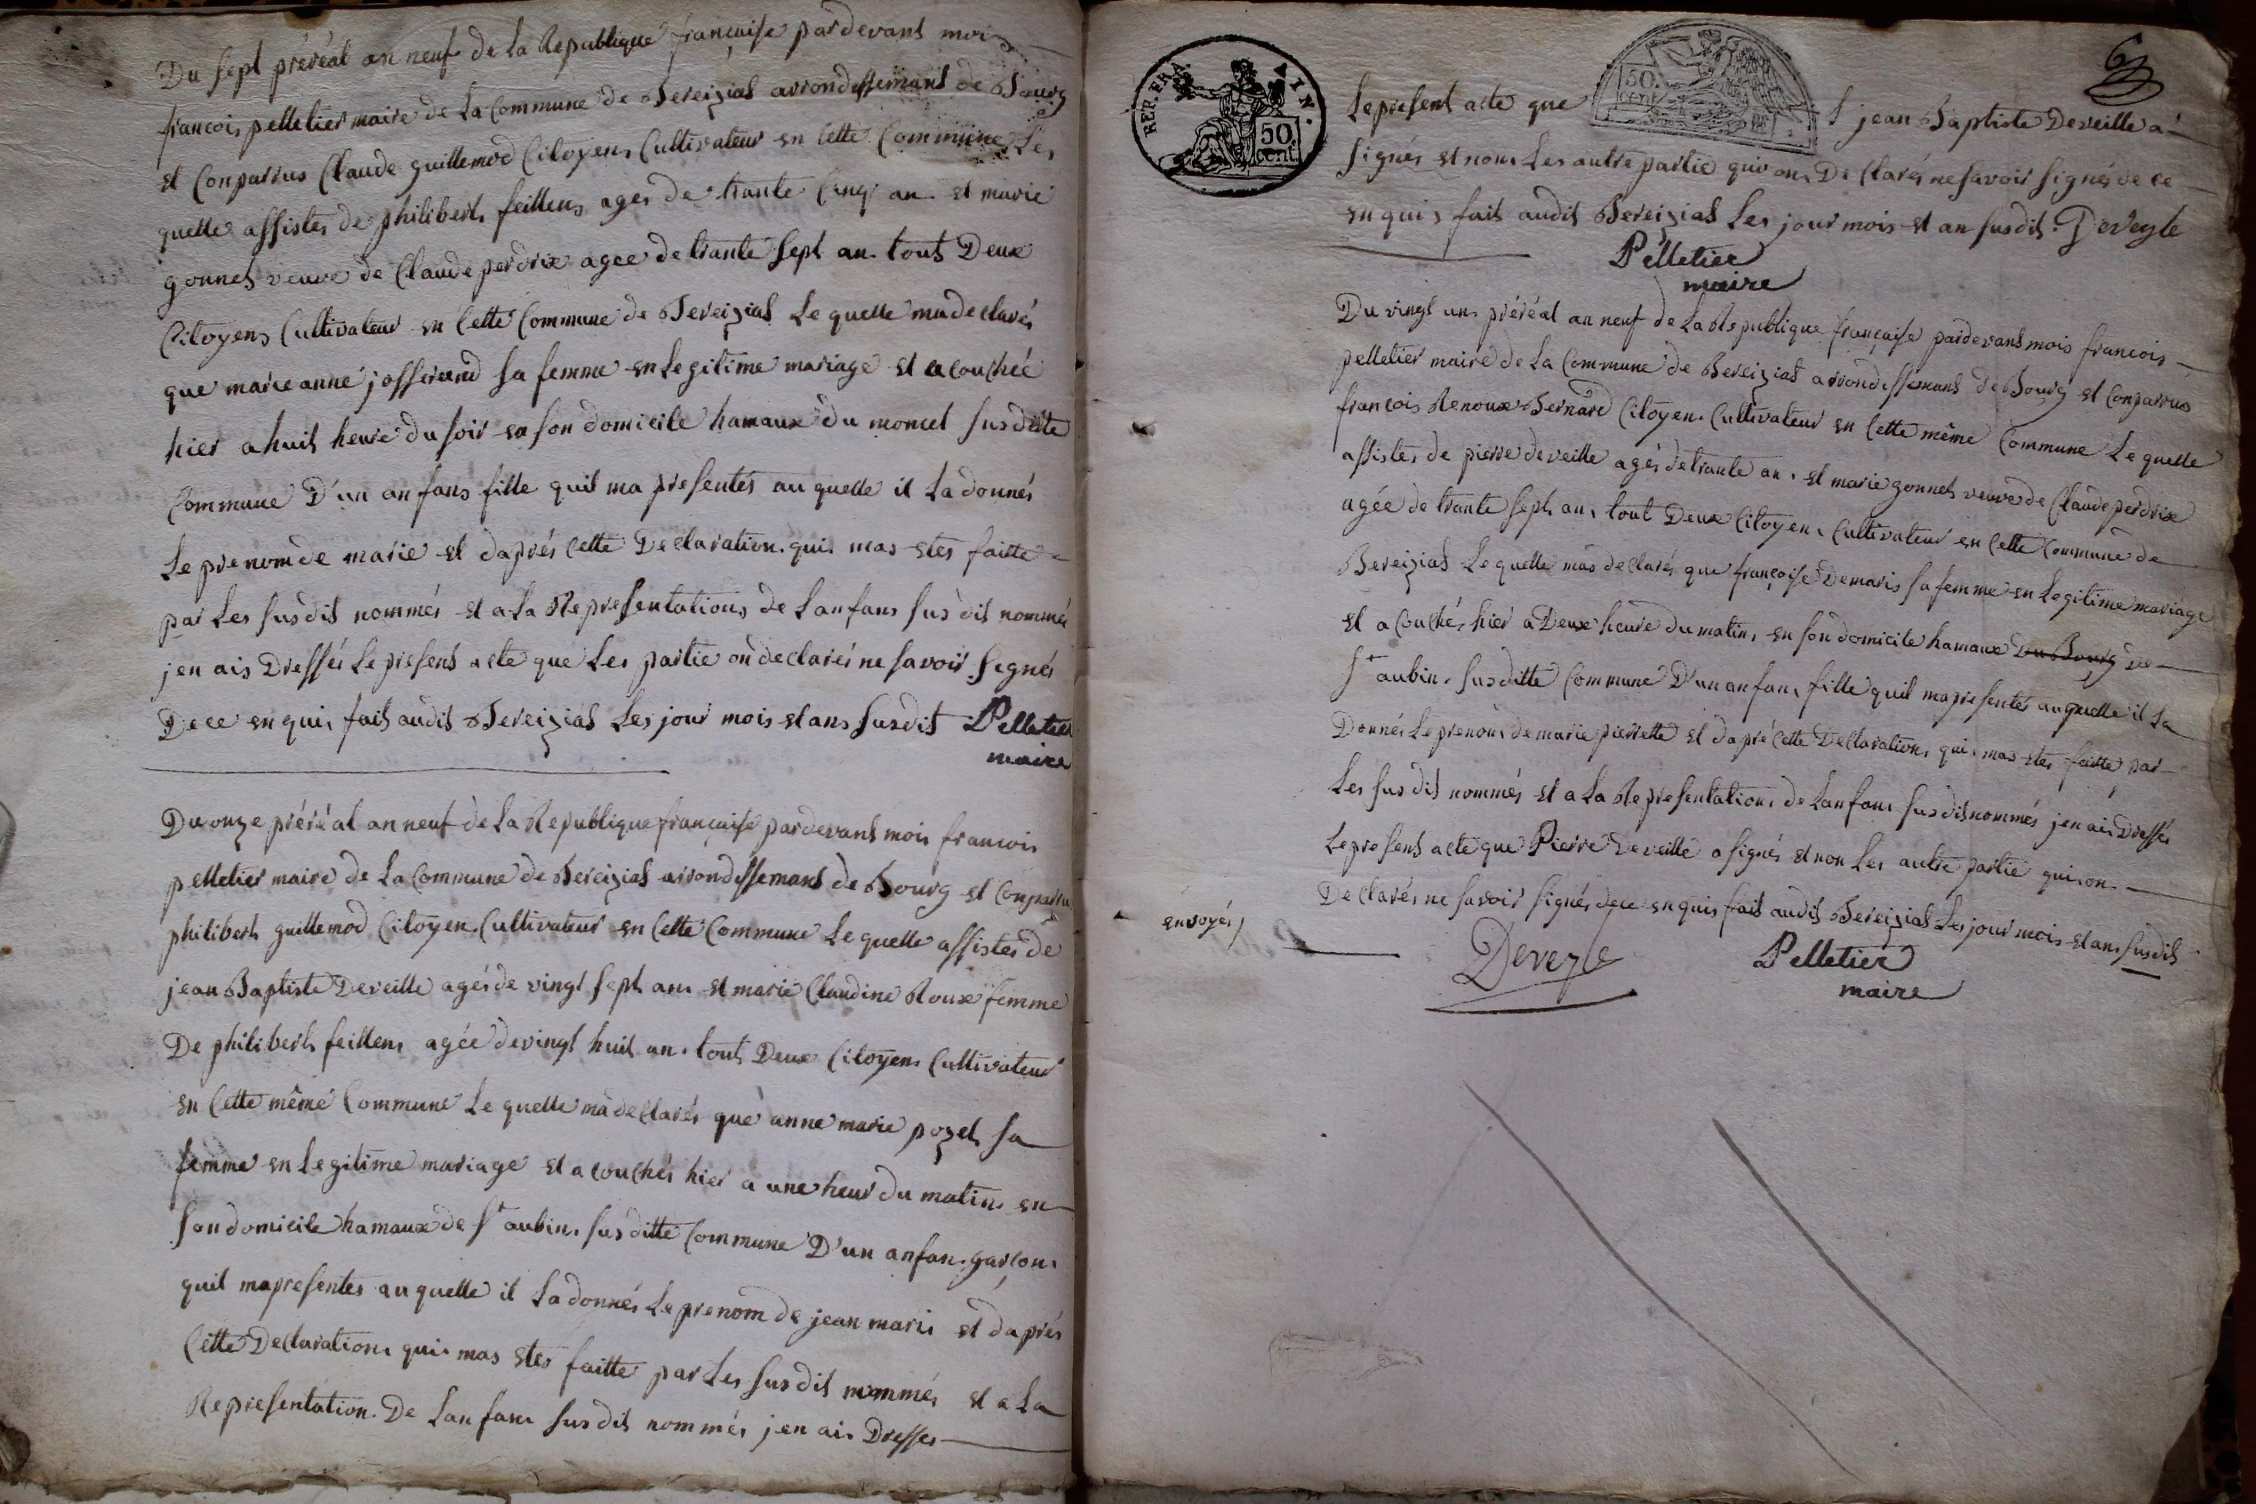 Du sept préréal an neuf de la Republique françaisse pardevant moi
francois pelletier maire de la Commune de Bereizias arrondissemans de Bourg
et Conparrus Claude guillemod Citoyens Cultivateur en Cette Commune Le
quelle assistés de philibert feillens ages de trante Cinq an et marie
gonnet veuve de Claude perdrix agee de trante sept an tout Deux
Citoyens Cultivateur en Cette Commune de Bereizias Le quelle madeclarés
que marie anne josserand sa femme en Legitime mariage et acouchéé
hier a huit heure du soir en son domicile hamaux du moncel susditte
Commune D'un anfans fille quil ma presentés au quelle il La donnés
Le prenom de marie et daprés Cette Declaration qui mas etes faitte
par Les susdit nommés et a La Representations de Lanfans susdit nommé
jen ais Dressés Le present acte que Les partie on declarés ne savoir signés
De ce en quis fait audit Bereizias Les jour mois et ans susdit Pelletier
maire
Du onze préréal an neuf de La Republique françaisse pardevant mois francois
pelletier maire de La Commune de Bereizias arrondissemans de Bourg et Conparru
philibert guillemod Citoyen Cultivateur en Cette Commune Le quelle assistes de
jean Baptiste Deveille agés de vingt sept ans et marie Claudine Roux femme
De philibert feillens agée de vingt huit an tout Deux Citoyens Cultivateur
en Cette même Commune Le quelle ma declarés que anne marie pozet sa
femme en Legitime mariage et acouchés hier a une heur du matin en
son domicile hamaux de St aubin susditte Commune D'un anfan garcon
quil mapresentes au quelle il La donnés Le prenom de jean marie et daprés
Cette Declaration qui mas etes faitte par Les susdit nommés et a La
Representation De Lanfans susdit nommés jen ais Dresses
REP. FRA. 50 cent.
50. cent.
Le present acte que jean Baptiste Deveille a
signés et nons Les autre partie qui on Declarés ne savoir signés de ce
en quis fait audit Bereizias Les jour mois et an susdit Deveyle
Pelletier
maire
Du vingt un préréal an neuf de La Republique françaisse pardevant mois francois
pelletier maire de La Commune de Bereizias arrondissemans de Bourg et Conparrus
francois Renoux Bernard Citoyen Cultivateur en Cette même Commune Le quelle
assistes de pierre deveille agés de trante an et marie gonnet veuve de Claude perdrix
agée de trante sept an tout Deux Citoyen Cultivateur en Cette Commune de
Bereizias Le quelle mas declarés que françoise Demaris sa femme en Legitime mariage
et acouchés hier a Deux heure du matin en son domicile hamaux Du Bourg De
St aubin susditte Commune D'un anfan fille quil mapresentés au quelle il La
Donnés Le prenom de marie pierrette et dapré Cette Declaration qui mas etes faitte par
Les susdit nommés et a La Representation de Lanfans susdit nommés jen ais Dressés
Le present acte que Pierre Deveille a signés et non Les autre partie qui on
Declarés ne savoir signés de ce en quis fait audit Bereizias Les jour mois et ans susdit
envoyés
Deveyle Pelletier
maire